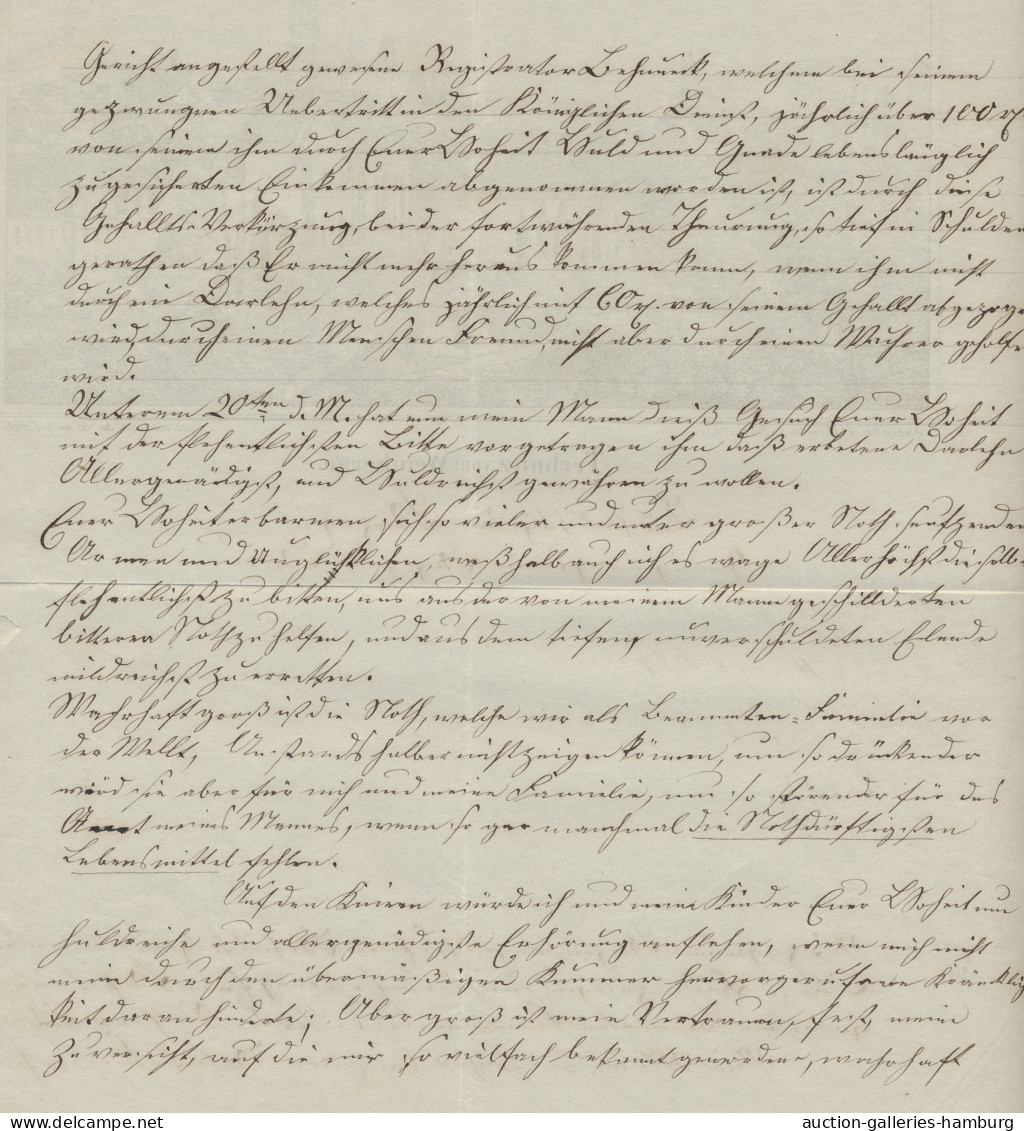 Gericht angestellt gewesene Registrator Behnueck, welchem bei seinem
gezwungnen Uebertritt in den Königlichen Dienst, jährlich über 100 rℓ.
von seinem ihm durch Euer Hoheit Huld und Gnade lebenslänglich
zugesicherten Einkommen abgenommen worden ist, ist durch diese
Gehallts-Verkürzung, bei der fortwährenden Theurung, so tief in Schulden
gerathen daß Er nicht mehr heraus kommen kann, wenn ihm nicht
durch ein Darlehn, welches jährlich mit 60 rℓ. von seinem Gehallt abgezoge
wird, durch einen Menschen Freund, nicht aber durch einen Wuchrer geholfe
wird.
Unterem 20ten d. M. hat nun mein Mann dieß Gesuch Euer Hoheit
mit der flehentlichsten Bitte vorgetragen ihm daß erbetene Darlehn
Allergnädigst, und Huldreichst gewähren zu wollen.
Euer Hoheit erbarmen sich so vieler und unter großer Noth seufzenden
Armen und Unglücklichen, weßhalb auch ich es wage Allerhöchst dieselb
flehentlichst zu bitten, uns aus der von meinem Manne geschillderten
bitteren Noth zu helfen, und aus dem tiefen, unverschuldeten Elende
mildreichst zu erretten.
Wahrhaft groß ist die Noth, welche wir als Beammten-Familie vor
der Wellt, Anstands halber nicht zeigen können, um so drückender
wird sie aber für mich und meine Familie, und so störender für das
Amt meines Mannes, wenn so gar manchmal die Nothdürftigsten
Lebensmittel fehlen.
Auf den Knieen würde ich und meine Kinder Euer Hoheit um
huldreiche und allergnädigste Erhörung anflehen, wenn mich nicht
meine durch den übermäßigen Kummer hervorgerufene Kräncklich
keit daran hinderte; Aber groß ist mein Vertrauen, fest, meine
Zuversicht, auf die mir so vielfach bekannt gewordene, wahrhaft
auction-galleries-hamburg